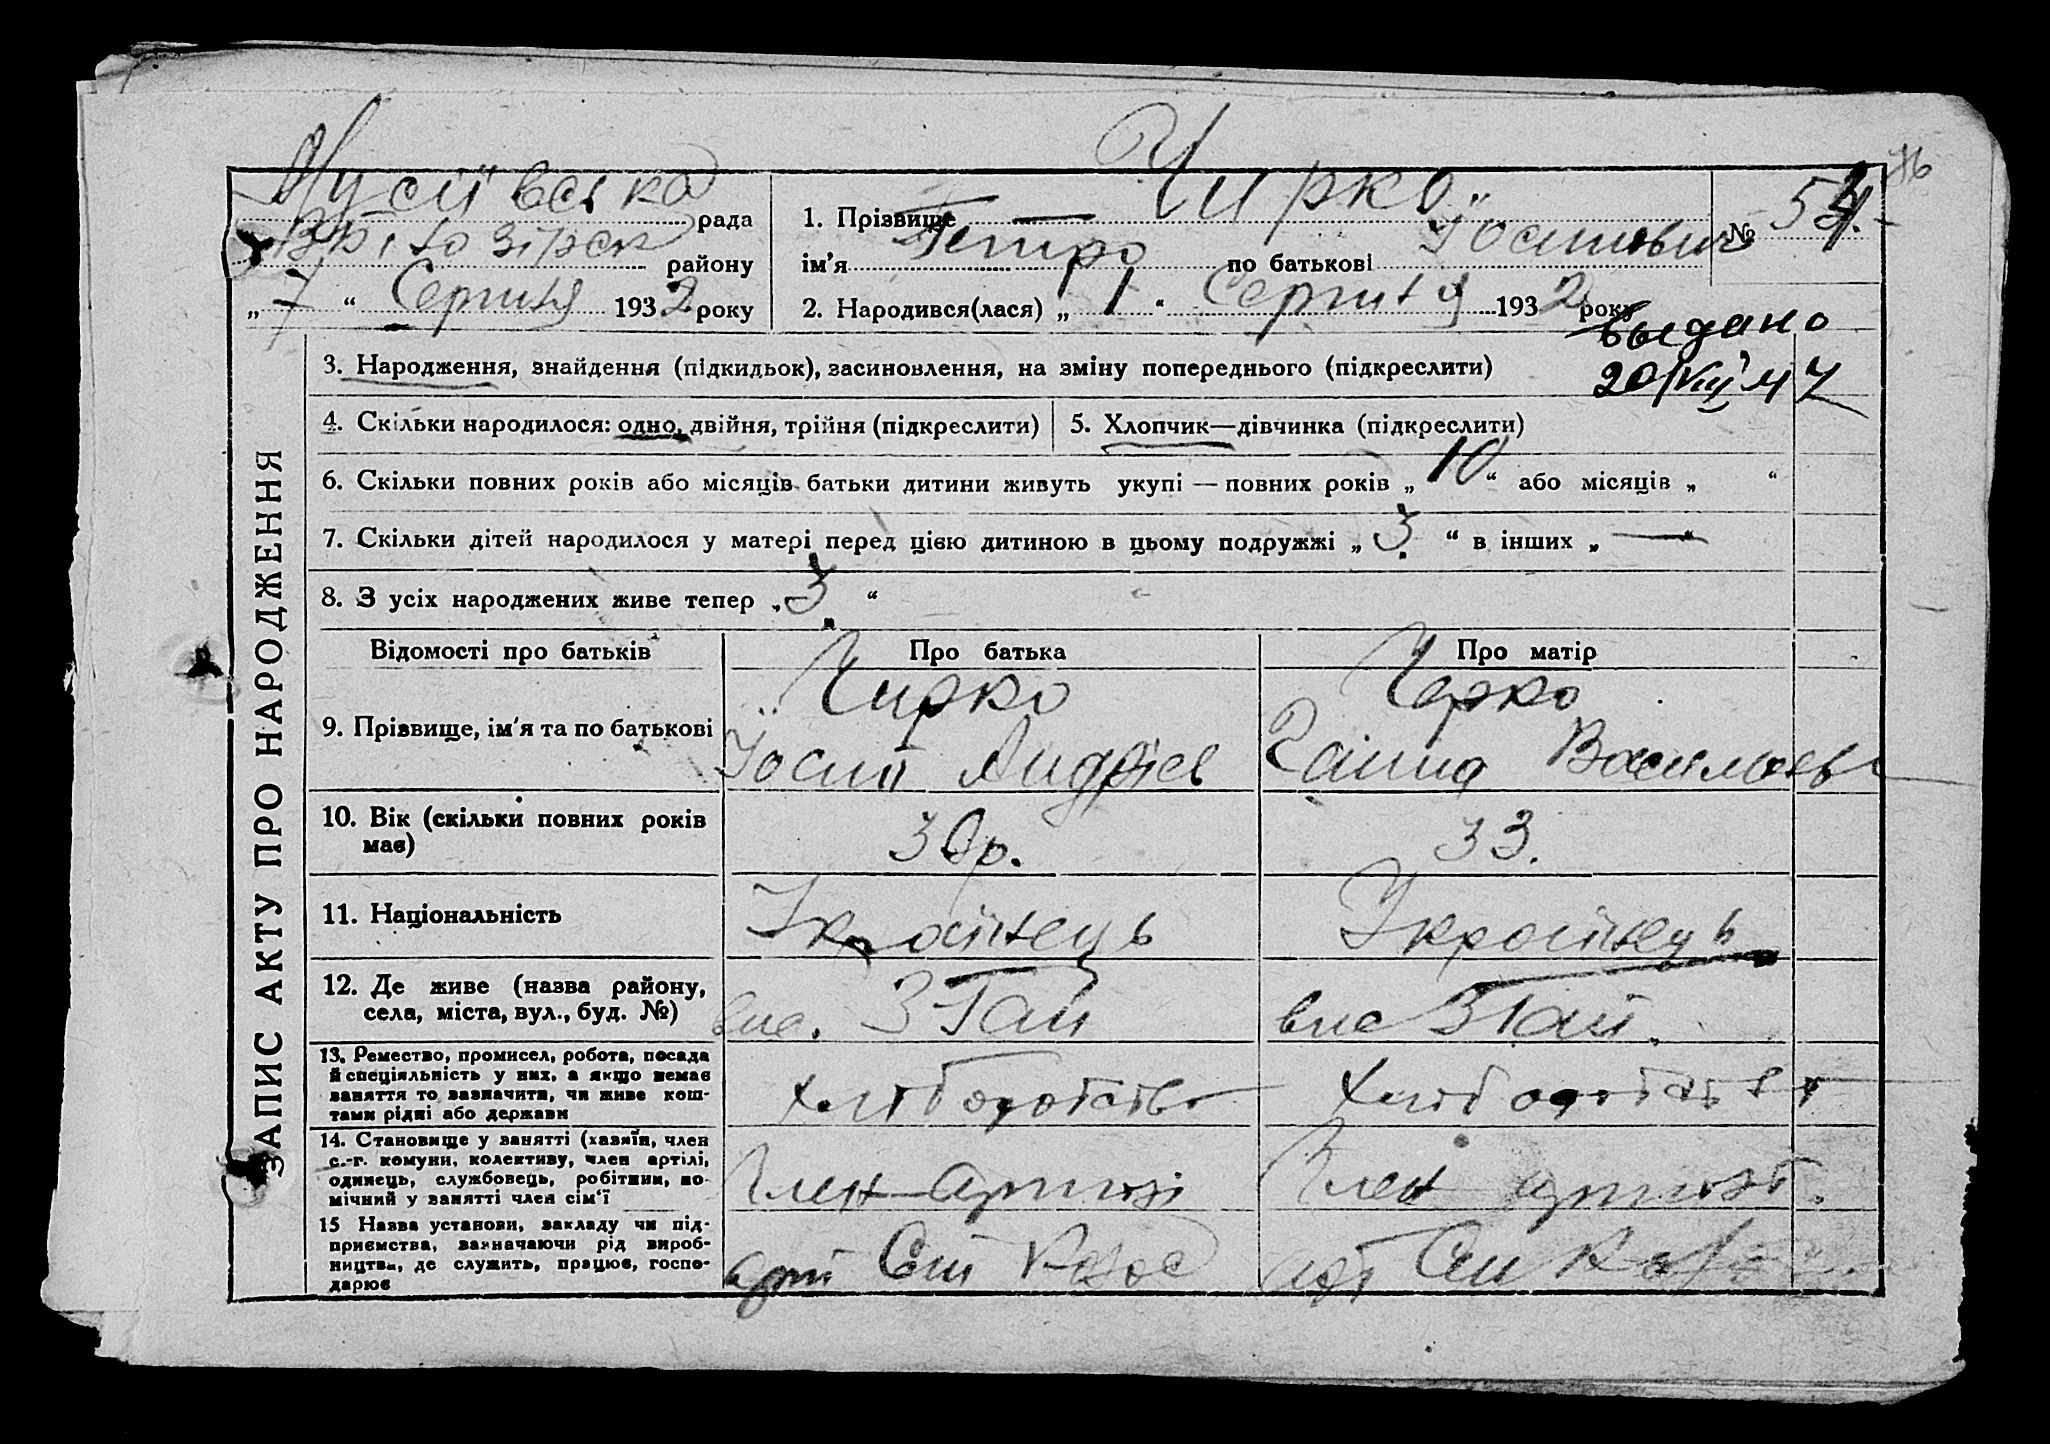 Мусіївська рада
району
„ 7 “ Серпня 1932 року
1. Прізвище Чирко
ім’я Петро по батькові Йосипович
2. Народився(лася) „ 1 “ Серпня 1932 року
№ 54
86
Выдано
20/VIII 47
ЗАПИС АКТУ ПРО НАРОДЖЕННЯ
3. Народження, знайдення (підкидьок), засиновлення, на зміну попереднього (підкреслити)
4. Скільки народилося: одно, двійня, трійня (підкреслити)
5. Хлопчик—дівчинка (підкреслити)
6. Скільки повних років або місяців батьки дитини живуть укупі — повних років „ 10 “ або місяців „ “
7. Скільки дітей народилося у матері перед цією дитиною в цьому подружжі „ 3 “ в інших „ — “
8. З усіх народжених живе тепер „ 3 “
Відомості про батьків Про батька Про матір
9. Прізвище, ім’я та по батькові
Чирко
Йосип Андрієв
Чирко
Ганна Васильев
10. Вік (скільки повних років має)
30р.
33.
11. Національність
Українець
Українець
12. Де живе (назва району,
села, міста, вул., буд. №)
13. Ремество, промисел, робота, посада
й спеціяльність у них, а якщо немає
заняття то зазначити, чи живе кош-
тами рідні або держави
хліборобство
хліборобство
14. Становище у занятті (хазяїн, член
с.-г. комуни, колективу, член артілі,
одинець, службовець, робітник, по-
мічний у занятті член сім’ї
Член артілі
Член артілі.
15 Назва установи, закладу чи під-
приємства, зазначаючи рід вироб-
ництва, де служить, працює, госпо-
дарює